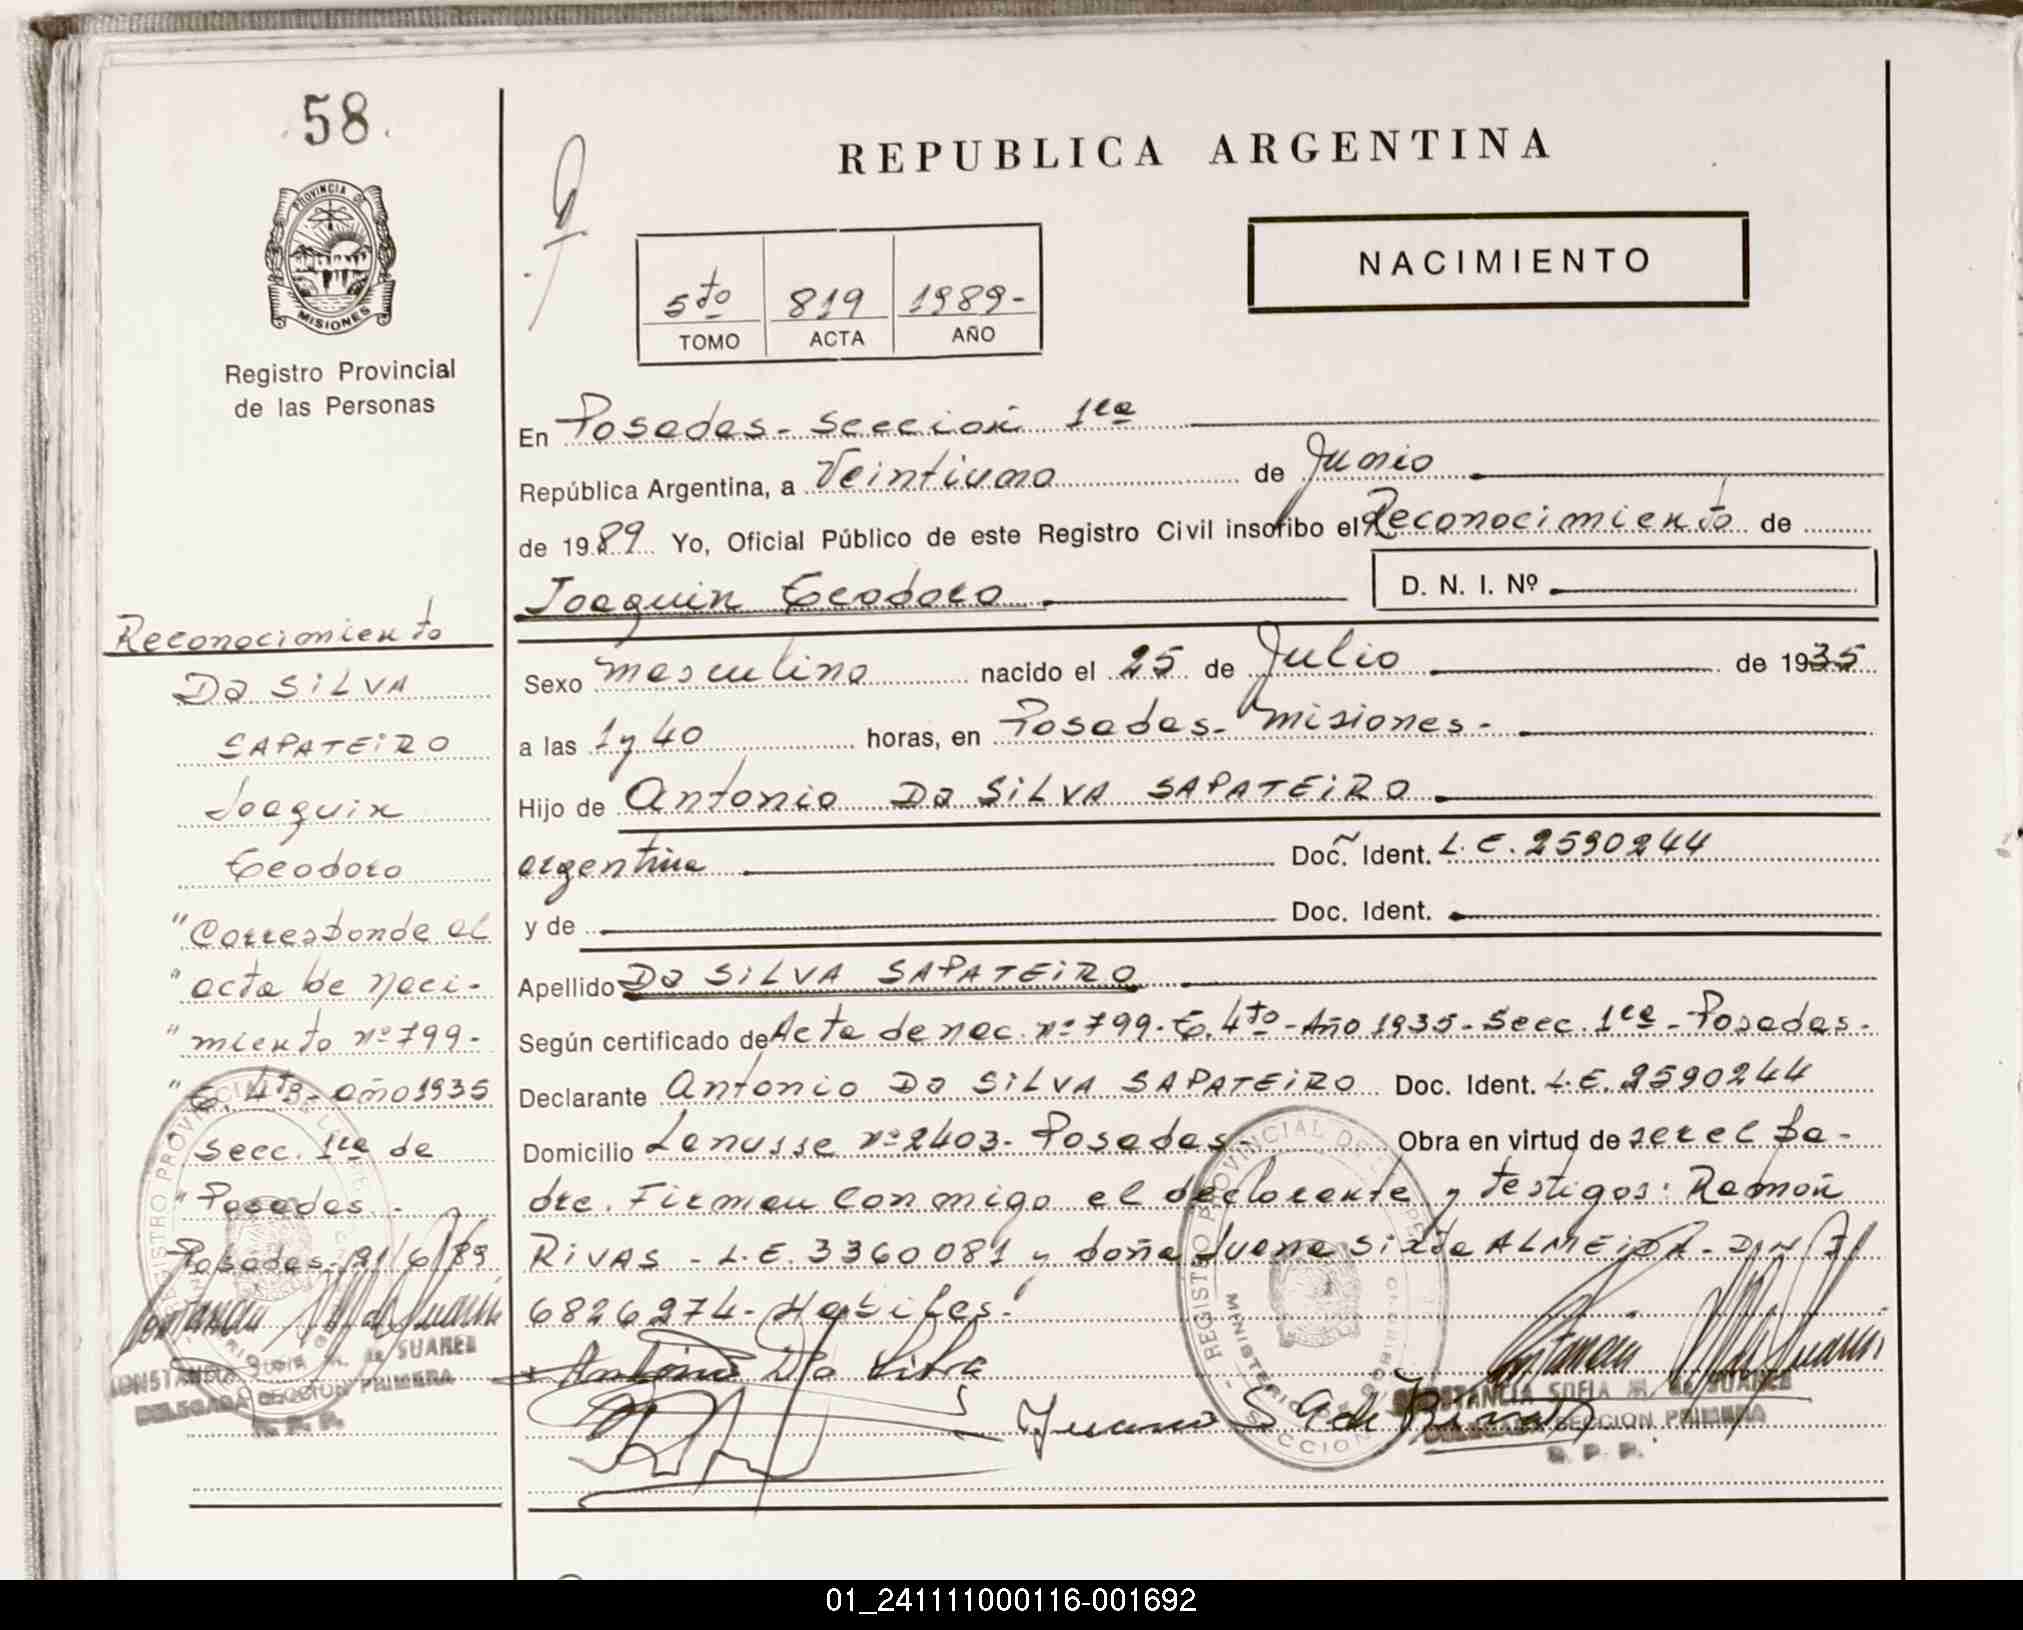 58
PROVINCIA DE
MISIONES
Registro Provincial
de las Personas
REPUBLICA ARGENTINA
NACIMIENTO
5to 819 1989-
TOMO ACTA AÑO
En Posadas - Sección 1ra
República Argentina, a Veintiuno de Junio
de 1989 Yo, Oficial Público de este Registro Civil inscribo el Reconocimiento de
Joaquin Teodoro D. N. I. Nº
Sexo masculino nacido el 25 de Julio de 1935
a las 1 y 40 horas, en Posadas - Misiones -
Hijo de Antonio Da SILVA SAPATEIRO
argentina Doc. Ident. L.E. 2590244
y de Doc. Ident.
Apellido Da SILVA SAPATEIRO
Según certificado de Acta de nac. nº 799 - T. 4to - Año 1935 - Secc. 1ra - Posadas -
Declarante Antonio Da SILVA SAPATEIRO Doc. Ident. L.E. 2590244
Domicilio Lanusse nº 2403 - Posadas - Obra en virtud de ser el pa-
dre. Firman conmigo el declarante y testigos: Ramón
RIVAS - L.E. 3360081 y doña Juana Sixta ALMEIDA - D.N.I.
6826274 - Habiles.
Antonio Da Silva
Juana S A de Rivas
CONSTANCIA SOFIA M. de SUAREZ
DELEGADA SECCION PRIMERA
R. P. P.
Reconocimiento
Da SILVA
SAPATEIRO
Joaquin
Teodoro
"Corresponde al
"acta de naci-
"miento nº 799 -
"T. 4to - año 1935
secc. 1ra de
"Posadas -
Posadas - 21/6/89
CONSTANCIA SOFIA M. de SUAREZ
DELEGADA SECCION PRIMERA
R. P. P.
01_241111000116-001692